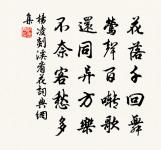 花落千回舞
鶯聲百囀歌
還同异方樂
不奈客愁多
楊凌剡溪看花詞典網
集